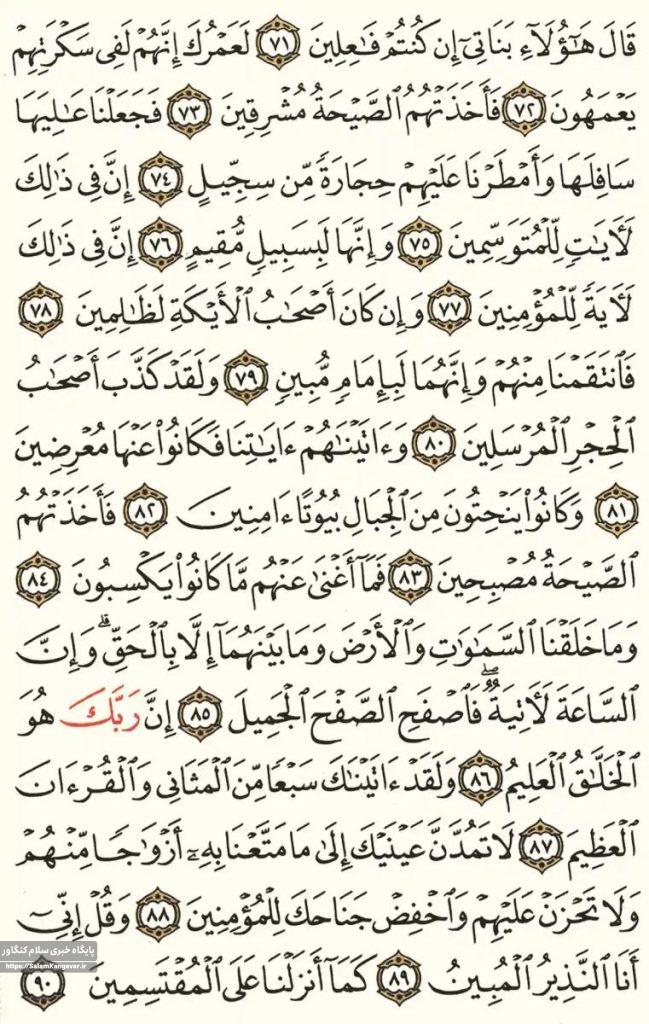 قَالَ هَـٰٓؤُلَآءِ بَنَاتِىٓ إِن كُنتُمْ فَـٰعِلِينَ ٧١ لَعَمْرُكَ إِنَّهُمْ لَفِى سَكْرَتِهِمْ
يَعْمَهُونَ ٧٢ فَأَخَذَتْهُمُ ٱلصَّيْحَةُ مُشْرِقِينَ ٧٣ فَجَعَلْنَا عَـٰلِيَهَا
سَافِلَهَا وَأَمْطَرْنَا عَلَيْهِمْ حِجَارَةً مِّن سِجِّيلٍ ٧٤ إِنَّ فِى ذَٰلِكَ
لَـَٔايَـٰتٍ لِّلْمُتَوَسِّمِينَ ٧٥ وَإِنَّهَا لَبِسَبِيلٍ مُّقِيمٍ ٧٦ إِنَّ فِى ذَٰلِكَ
لَـَٔايَةً لِّلْمُؤْمِنِينَ ٧٧ وَإِن كَانَ أَصْحَـٰبُ ٱلْأَيْكَةِ لَظَـٰلِمِينَ ٧٨
فَٱنتَقَمْنَا مِنْهُمْ وَإِنَّهُمَا لَبِإِمَامٍ مُّبِينٍ ٧٩ وَلَقَدْ كَذَّبَ أَصْحَـٰبُ
ٱلْحِجْرِ ٱلْمُرْسَلِينَ ٨٠ وَءَاتَيْنَـٰهُمْ ءَايَـٰتِنَا فَكَانُوا۟ عَنْهَا مُعْرِضِينَ
٨١ وَكَانُوا۟ يَنْحِتُونَ مِنَ ٱلْجِبَالِ بُيُوتًا ءَامِنِينَ ٨٢ فَأَخَذَتْهُمُ
ٱلصَّيْحَةُ مُصْبِحِينَ ٨٣ فَمَآ أَغْنَىٰ عَنْهُم مَّا كَانُوا۟ يَكْسِبُونَ ٨٤
وَمَا خَلَقْنَا ٱلسَّمَـٰوَٰتِ وَٱلْأَرْضَ وَمَا بَيْنَهُمَآ إِلَّا بِٱلْحَقِّ ۗ وَإِنَّ
ٱلسَّاعَةَ لَـَٔاتِيَةٌ ۖ فَٱصْفَحِ ٱلصَّفْحَ ٱلْجَمِيلَ ٨٥ إِنَّ رَبَّكَ هُوَ
ٱلْخَلَّـٰقُ ٱلْعَلِيمُ ٨٦ وَلَقَدْ ءَاتَيْنَـٰكَ سَبْعًا مِّنَ ٱلْمَثَانِى وَٱلْقُرْءَانَ
ٱلْعَظِيمَ ٨٧ لَا تَمُدَّنَّ عَيْنَيْكَ إِلَىٰ مَا مَتَّعْنَا بِهِۦٓ أَزْوَٰجًا مِّنْهُمْ
وَلَا تَحْزَنْ عَلَيْهِمْ وَٱخْفِضْ جَنَاحَكَ لِلْمُؤْمِنِينَ ٨٨ وَقُلْ إِنِّىٓ
أَنَا ٱلنَّذِيرُ ٱلْمُبِينُ ٨٩ كَمَآ أَنزَلْنَا عَلَى ٱلْمُقْتَسِمِينَ ٩٠
پایگاه خبری سلام کنگاور
https://SalamKangavar.ir